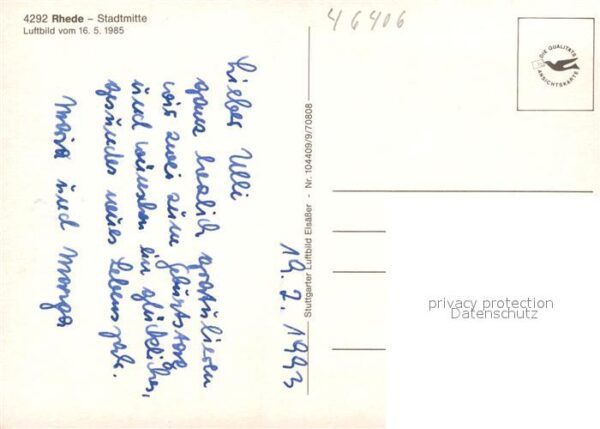 4292 Rhede – Stadtmitte
Luftbild vom 16. 5. 1985
46406
DIE QUALITÄTS
ANSICHTSKARTE
Stuttgarter Luftbild Elsäßer - Nr. 104409/9/70808
19. 2. 1993
Lieber Ulli
ganz herzlich gratulieren
wir zwei zum Geburtstag
und wünschen ein glückliches,
gesundes neues Lebensjahr.
Maria und Monga
privacy protection
Datenschutz